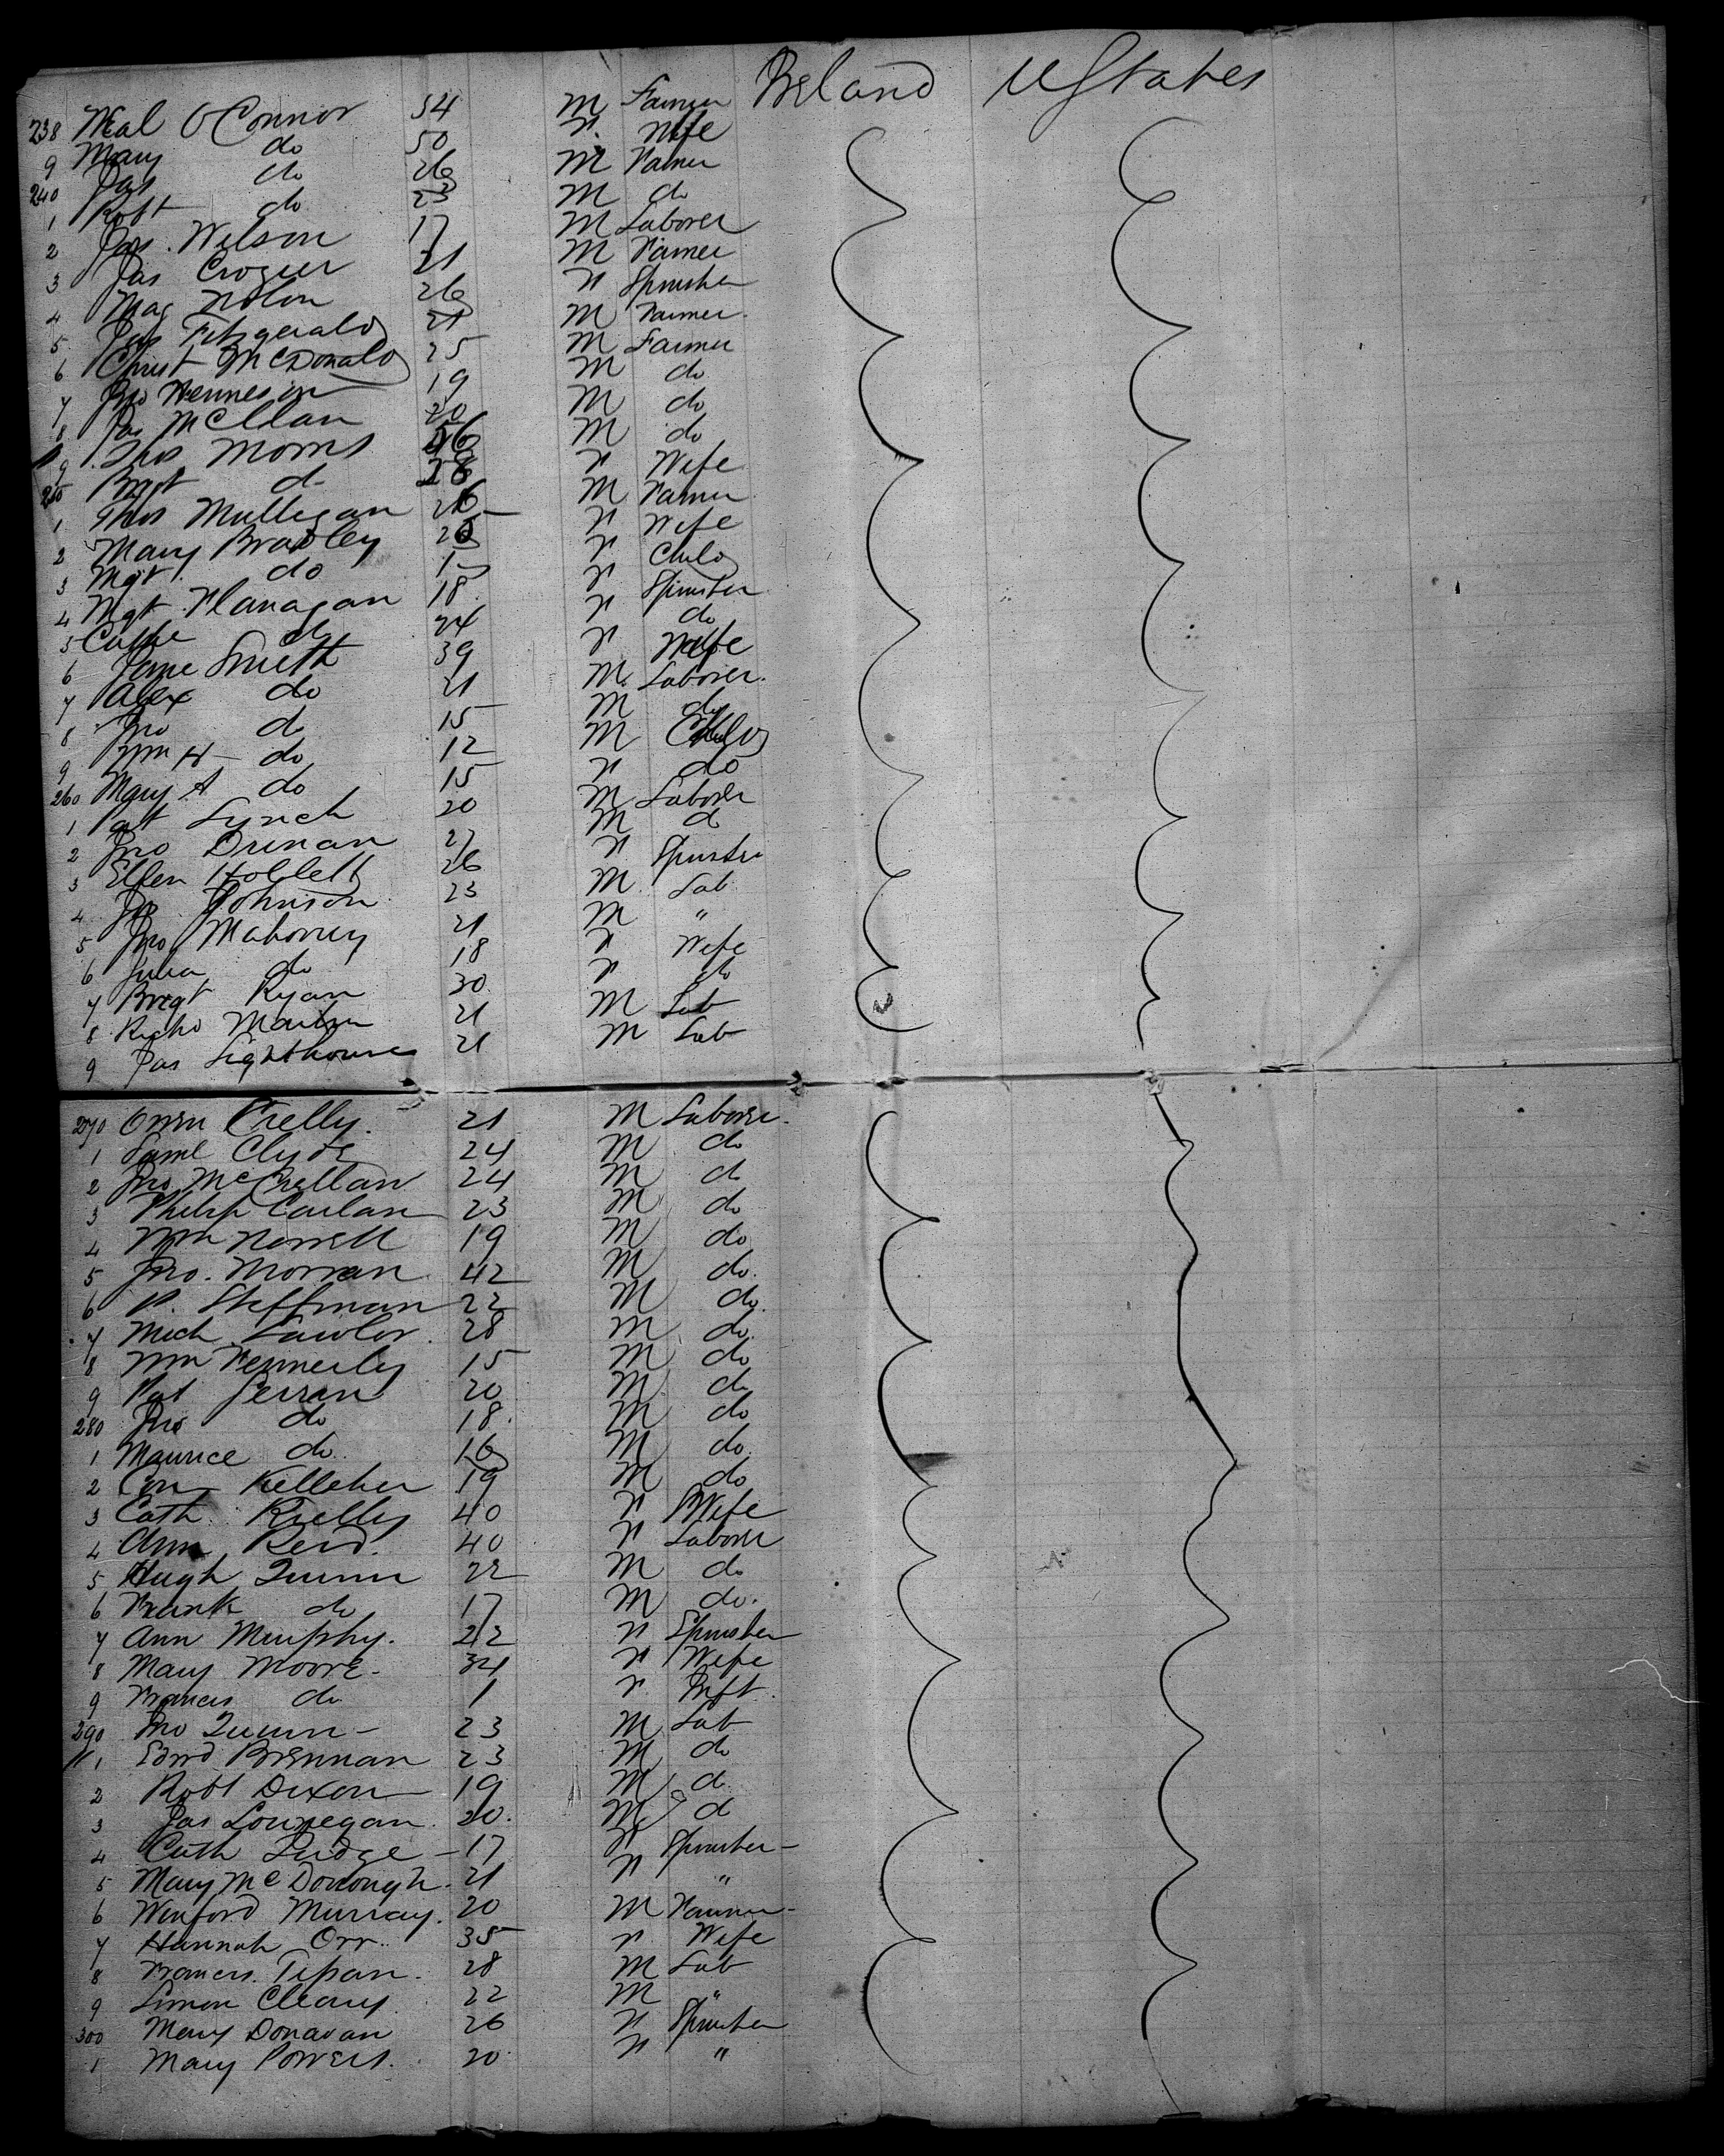 Ireland UStates
238 Neal O'Connor 54 M Farmer
9 Mary do 50 F Wife
240 Jas do 26 M Farmer
1 Robt do 23 M do
2 Jas. Wilson 17 M Laborer
3 Jas Crozier 21 M Farmer
4 Mag Nolan 26 F Spinster
5 Fitzgerald 21 M Farmer
6 Christ McDonald 25 M Farmer
7 Jno 19 M do
8 Jas McClan 20 M do
9 Thos Morris M do
250 Brgt do 28 F Wife
1 Thos Mulligan 26 M Farmer
2 Mary Bradley 26 F Wife
3 Mgt do 1 F Child
4 Mgt Flanagan 18 F Spinster
5 Cathe do 24 F do
6 Jane Smith 39 F Wife
7 Alex do 21 M Laborer
8 Jno do 15 M do
9 Wm H do 12 M Child
260 Mary A do 15 F do
1 Pat Lynch 20 M Laborer
2 Jno Drinan 27 M do
3 Ellen 26 F Spinster
4 Johnson 23 M Lab
5 Jno Mahoney 21 M "
6 Julia do 18 F Wife
7 Bregt Ryan 30 F do
8 Richd Martin 21 M Lab
9 Jas Lighthouse 21 M Lab
270 Owen Rielly 21 M Laborer
1 Saml Clyde 24 M do
2 Jno McClellan 24 M do
3 Philip Carlan 23 M do
4 Wm 19 M do
5 Jno. Morran 42 M do
6 P. Steffman 22 M do
7 Mich Lawlor 28 M do
8 Wm Fennerly 15 M do
9 Pat 20 M do
280 Jno do 18 M do
1 Maurice do 16 M do
2 Con Kelleher 19 M do
3 Cath Rielly 40 F Wife
4 Ann Reid 40 F Laborer
5 Hugh Quinn 22 M do
6 Frank do 17 M do
7 Ann Murphy 22 F Spinster
8 Mary Moore 34 F Wife
9 Frances do 1 F Inft
290 Jno Quinn 23 M Lab
1 Edwd Brennan 23 M do
2 Robt Dixon 19 M do
3 Jas Lounegan 20 M do
4 Cath Judge 17 F Spinster
5 Mary McDonough 21 F "
6 Winford Murray 20 M Farmer
7 Hannah Orr 35 F Wife
8 Francis 28 M Lab
9 Simon Cleary 22 M "
300 Mary Donavan 26 F Spinster
1 Mary Powers 20 F "